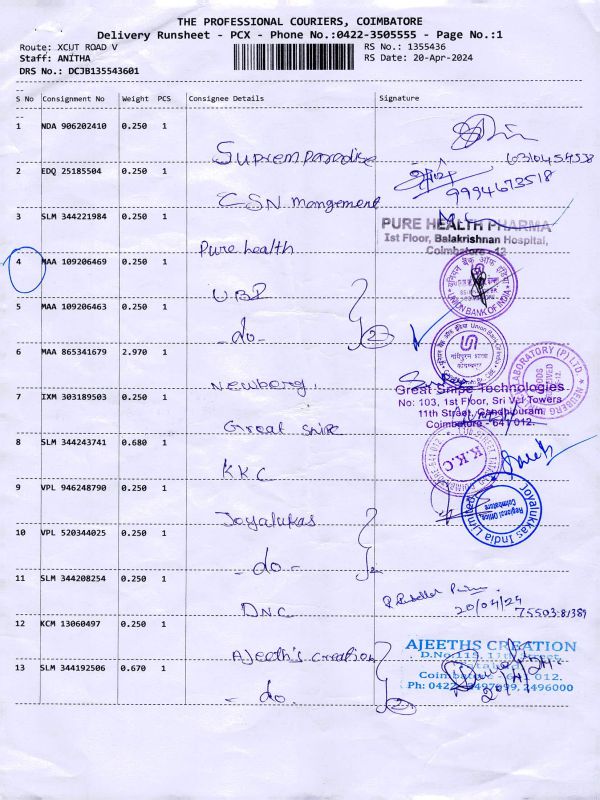 THE PROFESSIONAL COURIERS, COIMBATORE
Delivery Runsheet - PCX - Phone No.:0422-3505555 - Page No.:1
Route: XCUT ROAD V
RS No.: 1355436
Staff: ANITHA
RS Date: 20-Apr-2024
DRS No.: DCJB135543601
S No Consignment No Weight PCS Consignee Details Signature
1 NDA 906202410 0.250 1
Suprem paradise
2 EDQ 25185504 0.250 1
CSN mangement
9994673518
3 SLM 344221984 0.250 1
PURE HEALTH PHARMA
Ist Floor, Balakrishnan Hospital,
Coimbatore - 12
Pure health
4 MAA 109206469 0.250 1
UBI
यूनियन बैंक ऑफ इंडिया
UNION BANK OF INDIA
5 MAA 109206463 0.250 1
- do - 2
6 MAA 865341679 2.970 1
Newberg.
LABORATORY (P) LTD
Great Snipe Technologies
No: 103, 1st Floor, Sri Vpl Towers
11th Street, Gandhipuram,
Coimbatore - 641 012.
7 IXM 303189503 0.250 1
Great snipe
8 SLM 344243741 0.680 1
KKC
K K C
9 VPL 946248790 0.250 1
Joyalukas
Joyalukkas India Limited
Regional Office,
Coimbatore
10 VPL 520344025 0.250 1
- do - 2
11 SLM 344208254 0.250 1
DNC
20/04/24
75503-81389
12 KCM 13060497 0.250 1
Ajeeth's creation
AJEETHS CREATION
13 SLM 344192506 0.670 1
- do. 2